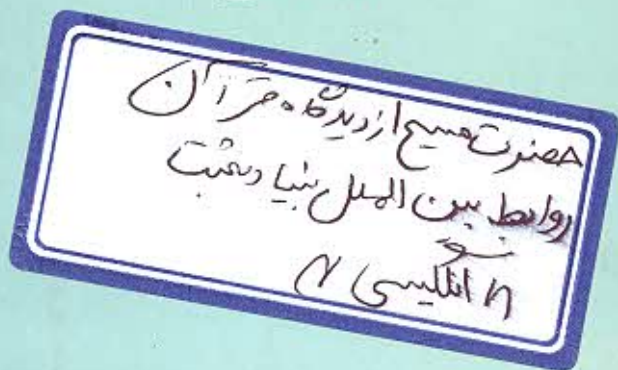 حضرت مسیح از دیدگاه قرآن
روابط بین الملل بنیاد بعثت
نو
« انگلیسی »